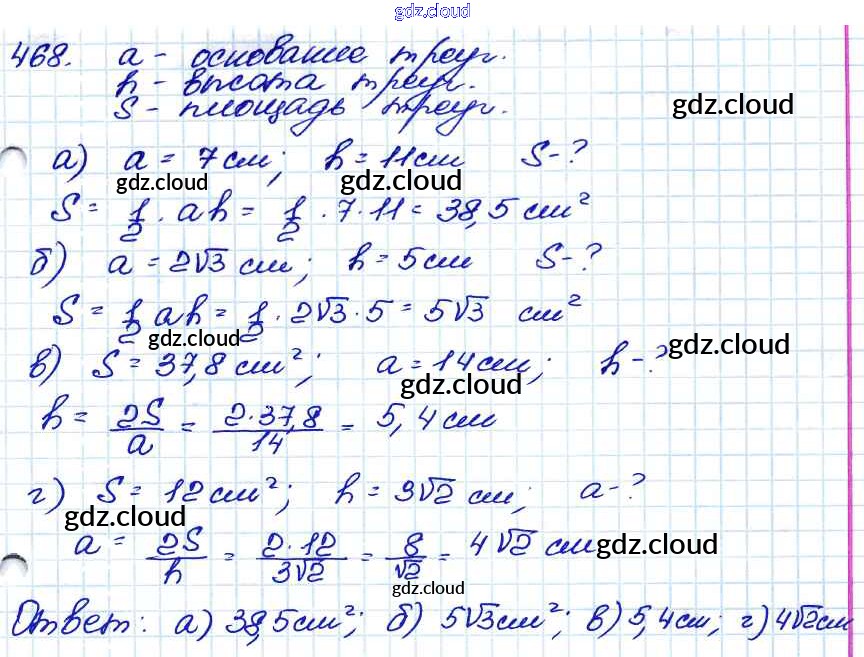 gdz.cloud
468. a - основание треуг.
h - высота треуг.
S - площадь треуг.
gdz.cloud
а) a = 7 см; h = 11 см S - ?
gdz.cloud gdz.cloud
S = 1/2 · ah = 1/2 · 7 · 11 = 38,5 см²
б) a = 2√3 см; h = 5 см S - ?
S = 1/2 ah = 1/2 · 2√3 · 5 = 5√3 см²
gdz.cloud gdz.cloud
в) S = 37,8 см²; a = 14 см; h - ?
gdz.cloud
h = 2S/a = 2·37,8/14 = 5,4 см
г) S = 12 см²; h = 3√2 см; a - ?
gdz.cloud
a = 2S/h = 2·12/3√2 = 8/√2 = 4√2 см
gdz.cloud
gdz.cloud
Ответ: а) 38,5 см²; б) 5√3 см²; в) 5,4 см; г) 4√2 см